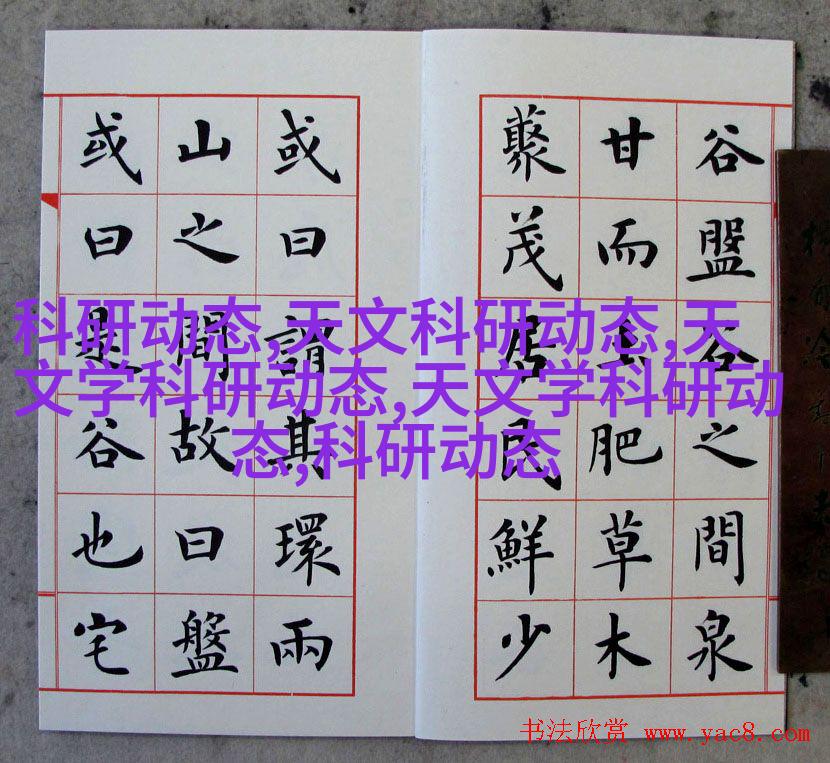 谷盤谷之間泉
甘而土肥草木
藂茂居民鮮少
或曰謂其環兩
山之間故曰盤
或曰是谷也宅
科研动态,天文科研动态,天
文学科研动态,天文学科研动
态,科研动态
书法欣赏 www.yac8.com